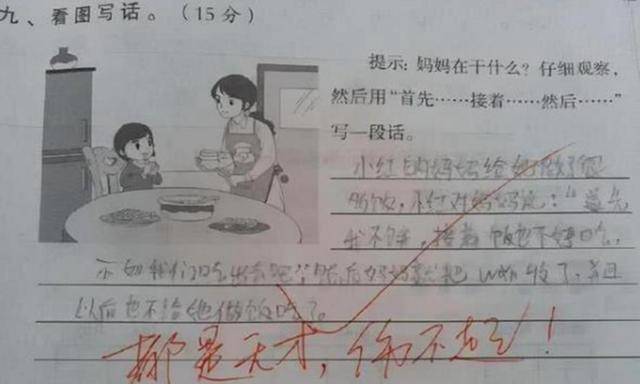 九、看图写话。(15分)
提示:妈妈在干什么?仔细观察,
然后用“首先……接着……然后……”
写一段话。
小红的妈妈给她做好饭
吃饭,小红对妈妈说:“首先
我不饿,接着饭也不好吃,
不如我们吃出去吧”;然后妈妈就把 wǎn 收了,并且
以后也不给她做饭吃了。
都是天才,伤不起!